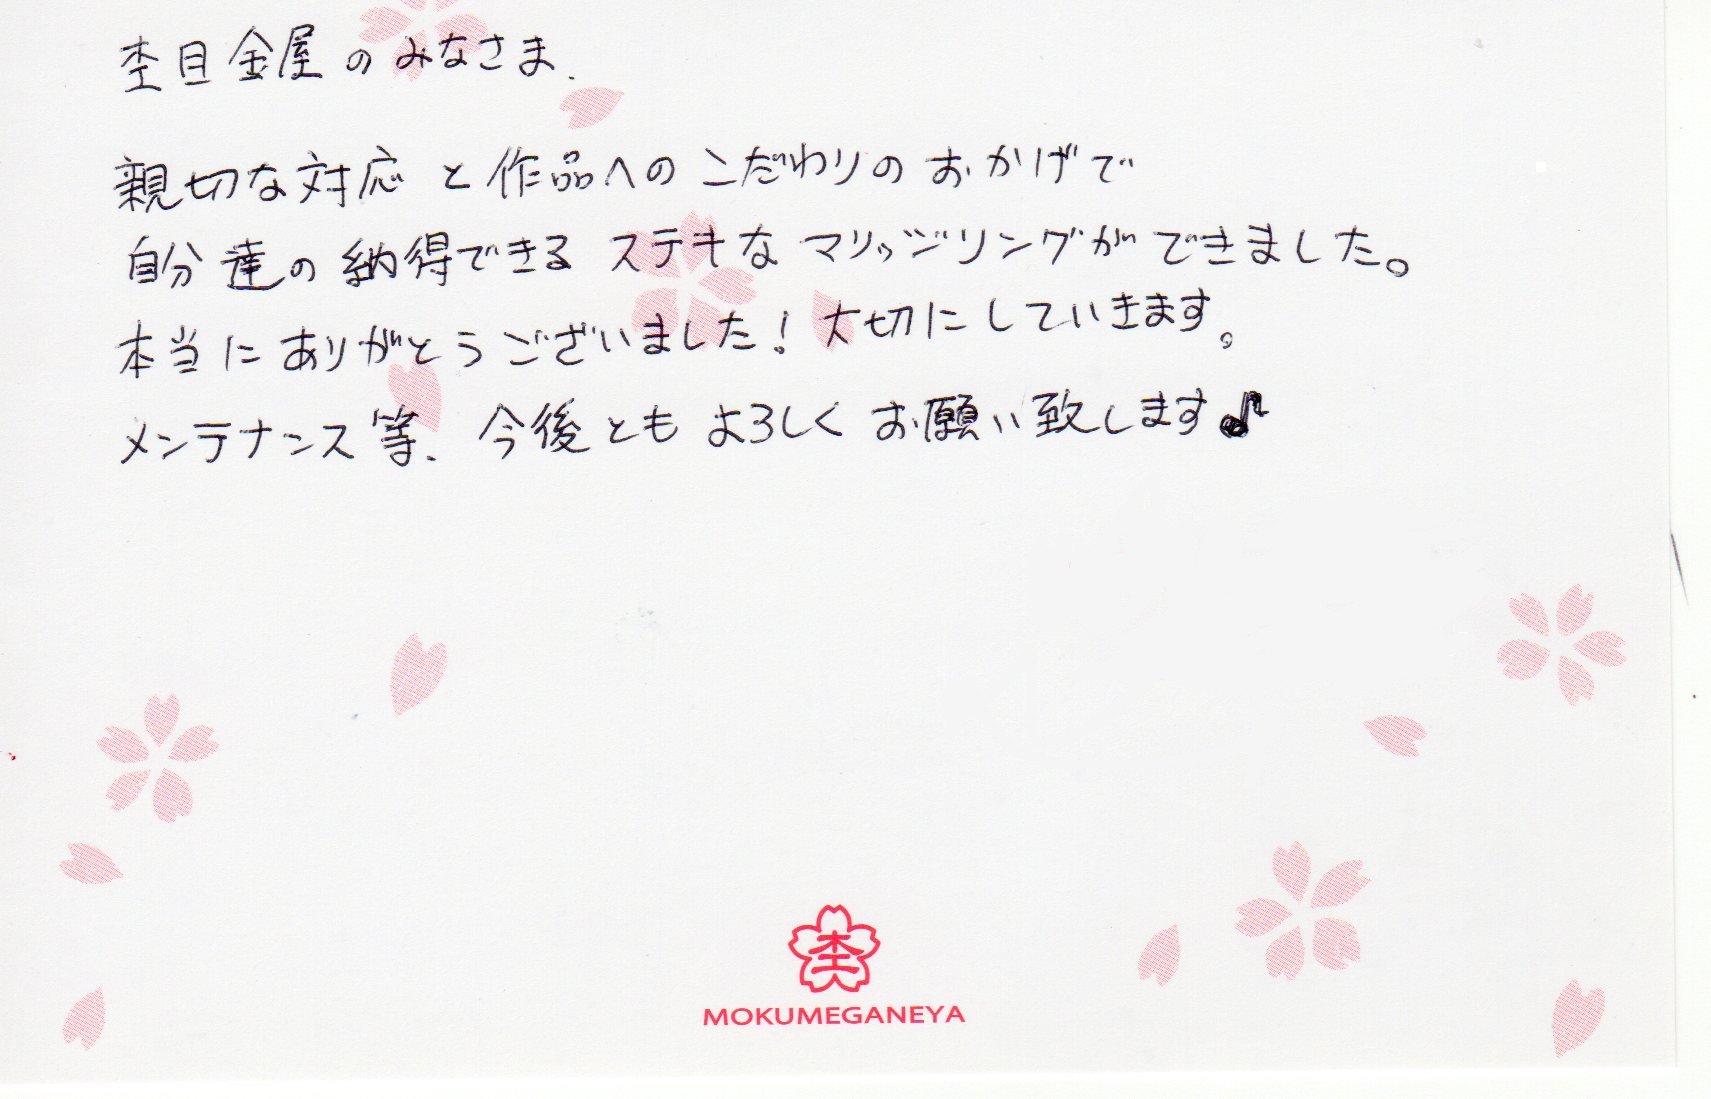 杢目金屋のみなさま.
親切な対応と作品へのこだわりのおかげで
自分達の納得できるステキなマリッジリングができました。
本当にありがとうございました！大切にしていきます。
メンテナンス等、今後ともよろしくお願い致します♪
杢
MOKUMEGANEYA